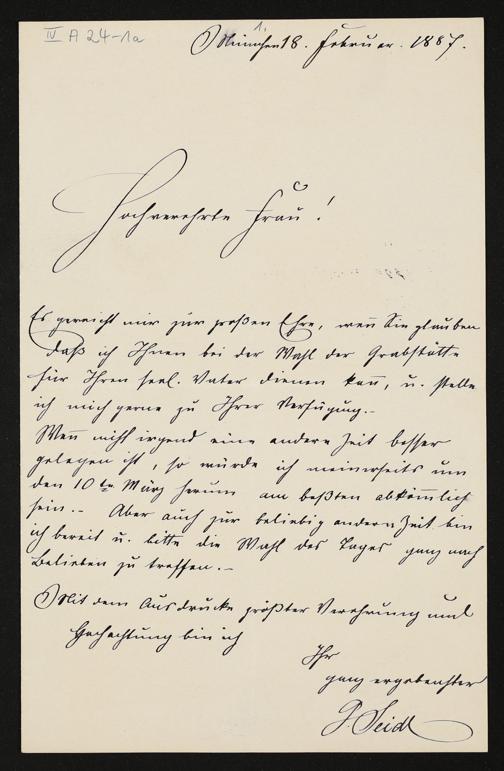 IV A 24-1a
1.
München 18. Februar. 1887.
Hochverehrte Frau!
Es gereicht mir zur großen Ehre, wen̅ Sie glauben
daß ich Ihnen bei der Wahl der Grabstätte
für Ihren seel. Vater dienen kan̅, u. stelle
ich mich gerne zu Ihrer Verfügung.-
Wen̅ nicht irgend eine andere Zeit besser
gelegen ist, so würde ich meinerseits um
den 10ten März herum am beßten abkom̅lich
sein.- Aber auch zur beliebig andern Zeit bin
ich bereit u. bitte die Wahl des Tages ganz nach
Belieben zu treffen.-
Mit dem Ausdrucke größter Verehrung und
Hochachtung bin ich
Ihr
ganz ergebenster
Seidl